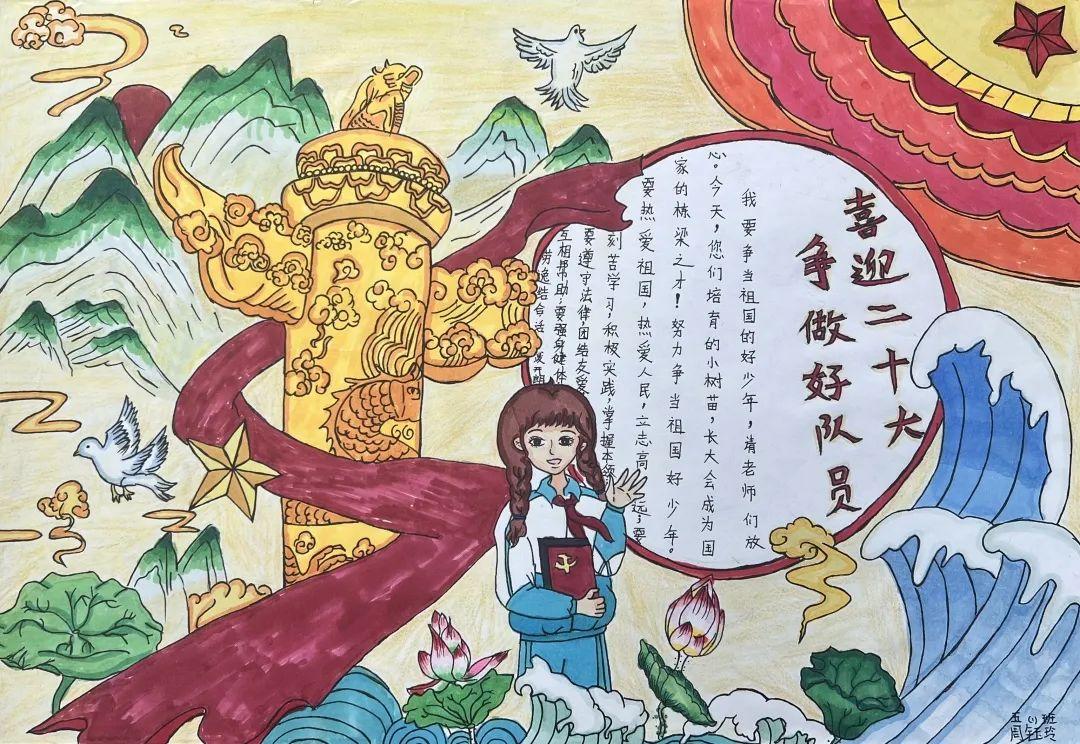 喜迎二十大
争做好队员
我要争当祖国的好少年，请老师们放
心。今天，您们培育的小树苗，长大会成为国
家的栋梁之才！努力争当祖国好少年。
要热爱祖国，热爱人民，立志高远；要
刻苦学习，积极实践，掌握本领
要遵守法律，团结友爱
互相帮助；要强身健体
劳逸结合活
五(1)班
周钰玲